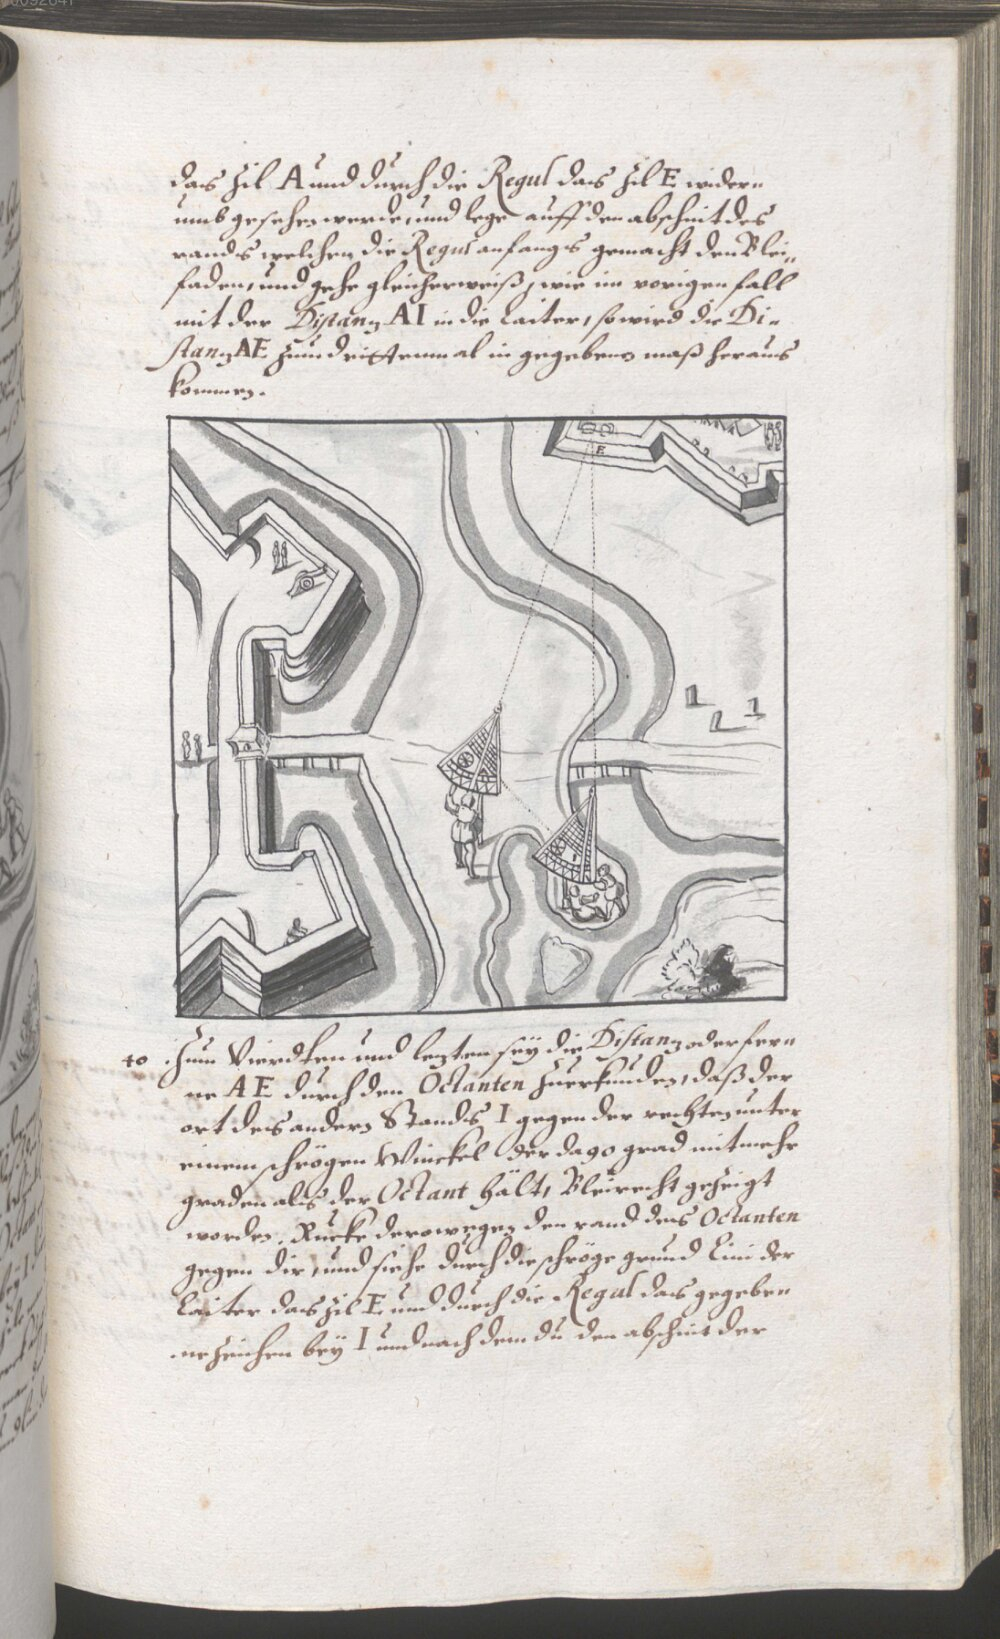 das Zil A und durch die Regul das Zil E widerū
umb gesehen werde, und lege auff den abschnit des
rands welchen die Regul anfangs gemacht den Blei„
faden, und gehe gleicherweiß, wie im vorigen fall
mit der Distanz AI in die Laiter, so wird die Di„
stanz AE zum drittenmal in gegebenem maß heraus
kommen.
E
I
40 Zum Vierdten und lezten sey die Distanz oder fern
ne AE durch den Octanten zuerkunden, daß der
ort des andern Stands I gegen der rechten unter
einem schrögen Winckel der da 90 grad mit mehr
graden als der Octant hält, Bleirecht gezeigt
worden, Rucke derowegen den rand des Octanten
gegen dir, und siehe durch die schröge grund Lini der
Laiter das Zil E, und durch die Regul das gegeben
ne zeichen bey I und nach dem du den abschnit der